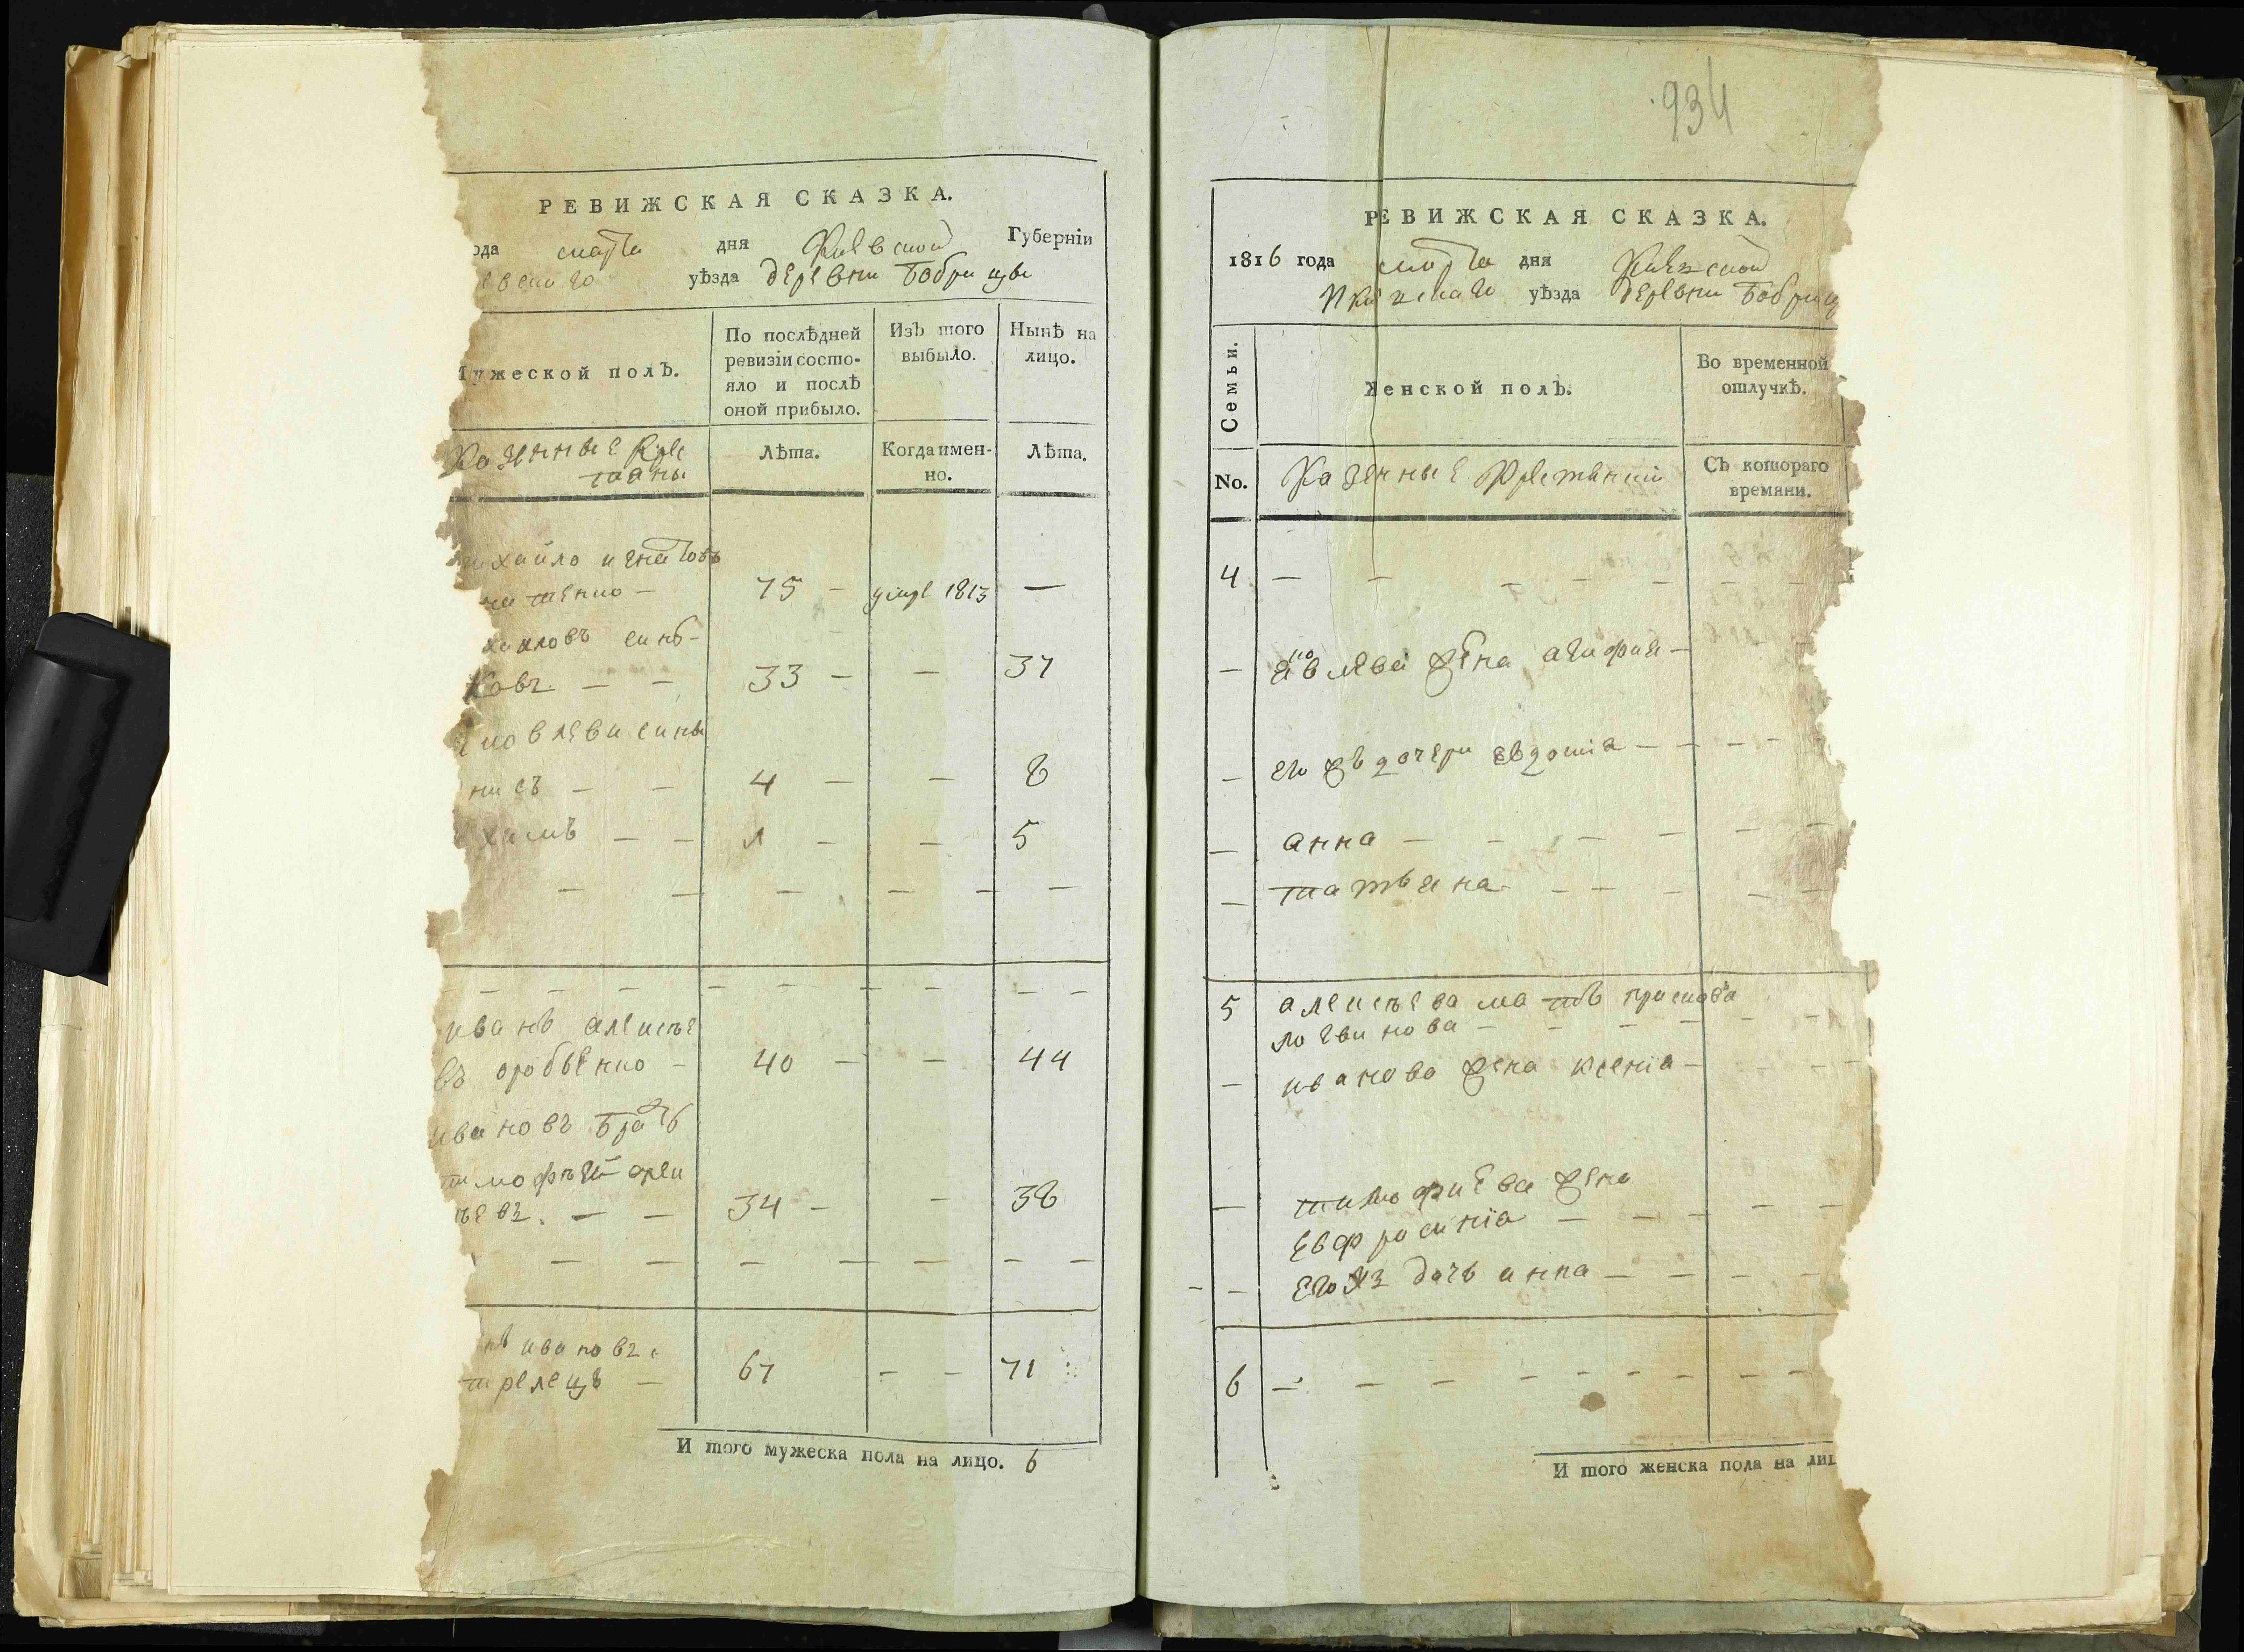 РЕВИЖСКАЯ СКАЗКА.
ода марта дня Киевской Губерніи
евского уѣзда деревни Бобрицы
ужеской полЪ.
По послѣдней
ревизіи состо-
яло и послѣ
оной прибыло.
ИзЪ того
выбыло.
Нынѣ на
лицо.
Казенные Кре
тяны
Лѣта.
Когда имен-
но.
Лѣта.
ихайло игнатовъ
тенко –
75 – умре 1813 —
хайловъ синъ –
ковъ – – 33 – – 37
яковлеви сины
нисъ – – 4 – – 8
химъ – – 1 – – 5
иванъ алексѣе
въ оробъенко – 40 – – 44
ивановъ братъ
тимофѣй алек
ѣевъ. – – 34 – – 38
нъ ивановъ с
трелецъ – 67 – – 71
И того мужеска пола на лицо. 6
934
РЕВИЖСКАЯ СКАЗКА.
1816 года марта дня Киевской
Киевскаго уѣзда деревни Бобриц
Семьи.
Женской полЪ.
Во временной
отлучкѣ.
No.
Казенные Крестянки
СЪ котораго
времяни.
4 – – – – – – –
– яковлева жена агафия –
– его жъ дочери евдокия – – – –
– анна – – – – – –
– татьяна – – – – –
5 алексѣева мать прасковя
логвинова – – – – – –
– иванова жена ксенія – – –
– тимофиева жена
евфросинія – – – – – –
– его жъ дочъ анна – – – –
6 – – – – – – – – –
И того женска пола на лиц